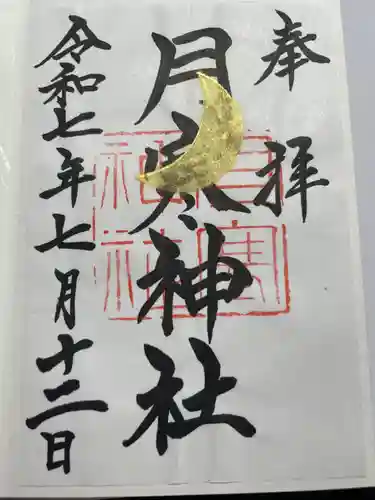 奉拝
月寒神社
令和七年七月十二日
月寒神社